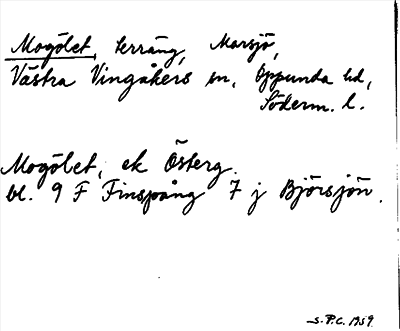 Mogölet, terräng, Marsjö,
Västra Vingåkers sn, Oppunda hd,
Söderm. l.
Mogölet, ek Österg.
bl. 9 F Finspång 7 j Björsjön.
S.P.C. 1959